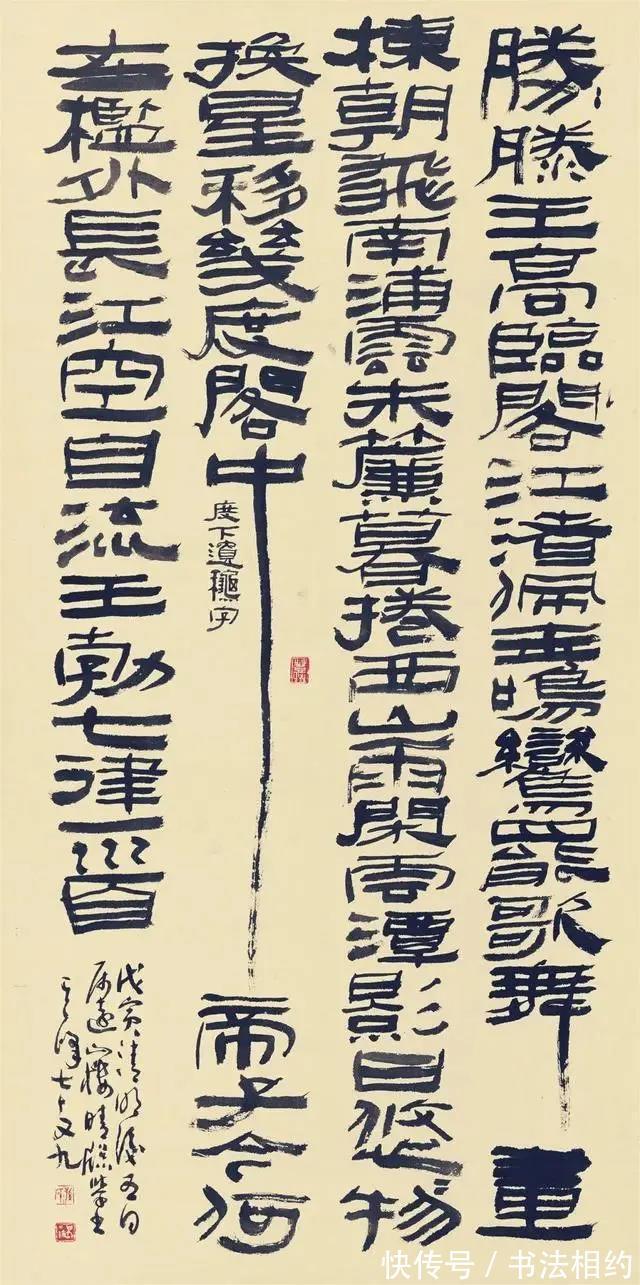 勝滕王高臨閣江渚佩玉鳴鸞罷歌舞畫
棟朝飛南浦雲朱簾暮捲西山雨閑云潭影日悠物
換星移幾度閣中帝子今何
度下遺龝字
在檻外長江空自流王勃七律一首
戊寅清明後五日
遠山樓晴牕學書
七十又九
快传号 / 书法相约